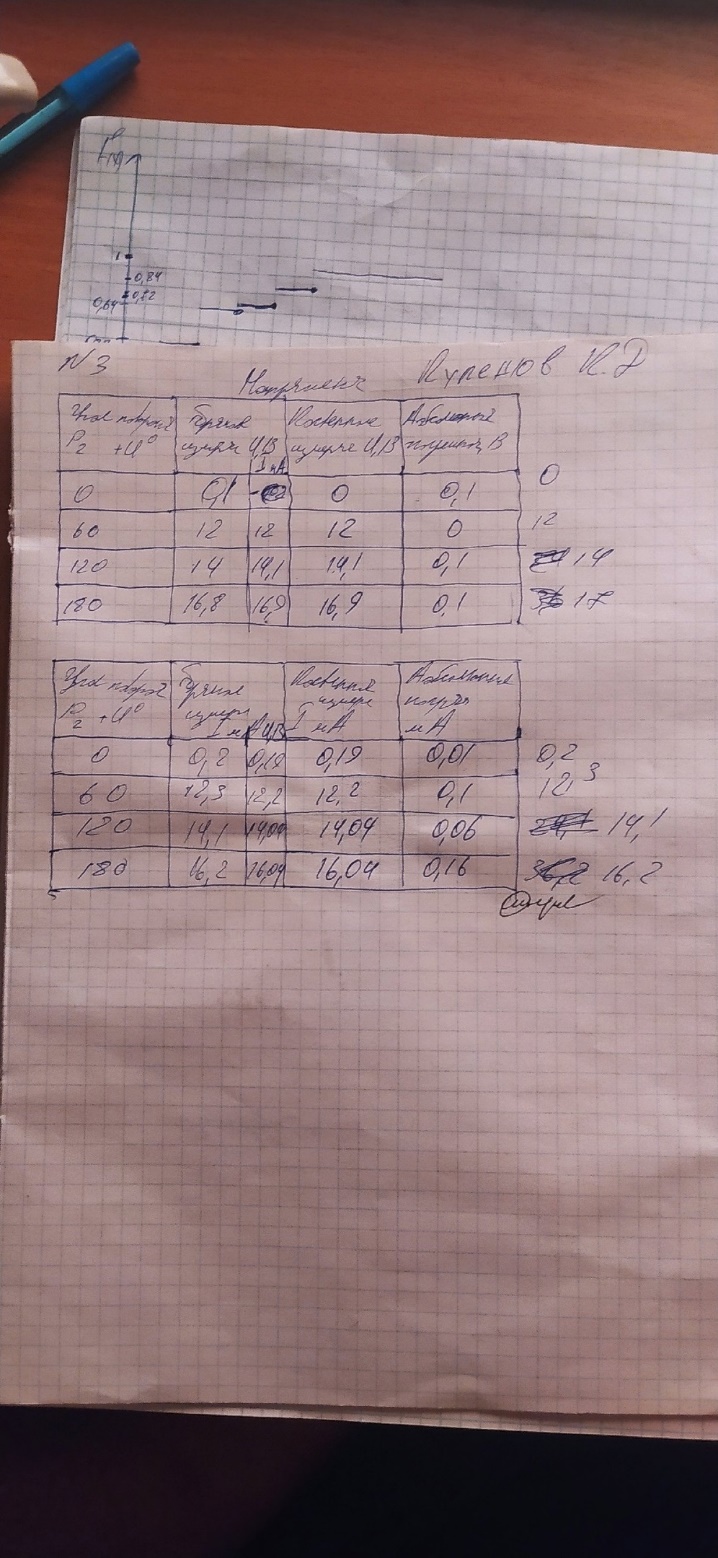 1
0,84
0,72
0,64
N3
Напряжение Купенов К.Д
Угол поворота Прямое Косвенное Абсолютная
P2 +U° измерен U,В измерен U,В погрешн, В
I мА
0 0,1 0 0,1 0
60 12 12 12 0 12
120 14 14,1 14,1 0,1 14
180 16,8 16,9 16,9 0,1 17
Угол поворота Прямое Косвенное Абсолютная
P2 +U° измерен измере погреш
I мА U,В I мА мА
0 0,2 0,19 0,19 0,01 0,2
60 12,3 12,2 12,2 0,1 12,3
120 14,1 14,04 14,04 0,06 14,1
180 16,2 16,04 16,04 0,16 16,2